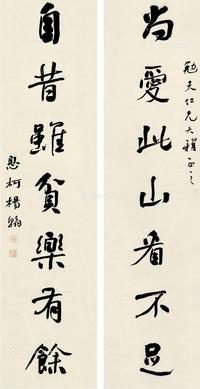 勉夫仁兄大雅正之
尚愛此山看不足
自昔雖貧樂有餘
息柯楊翰